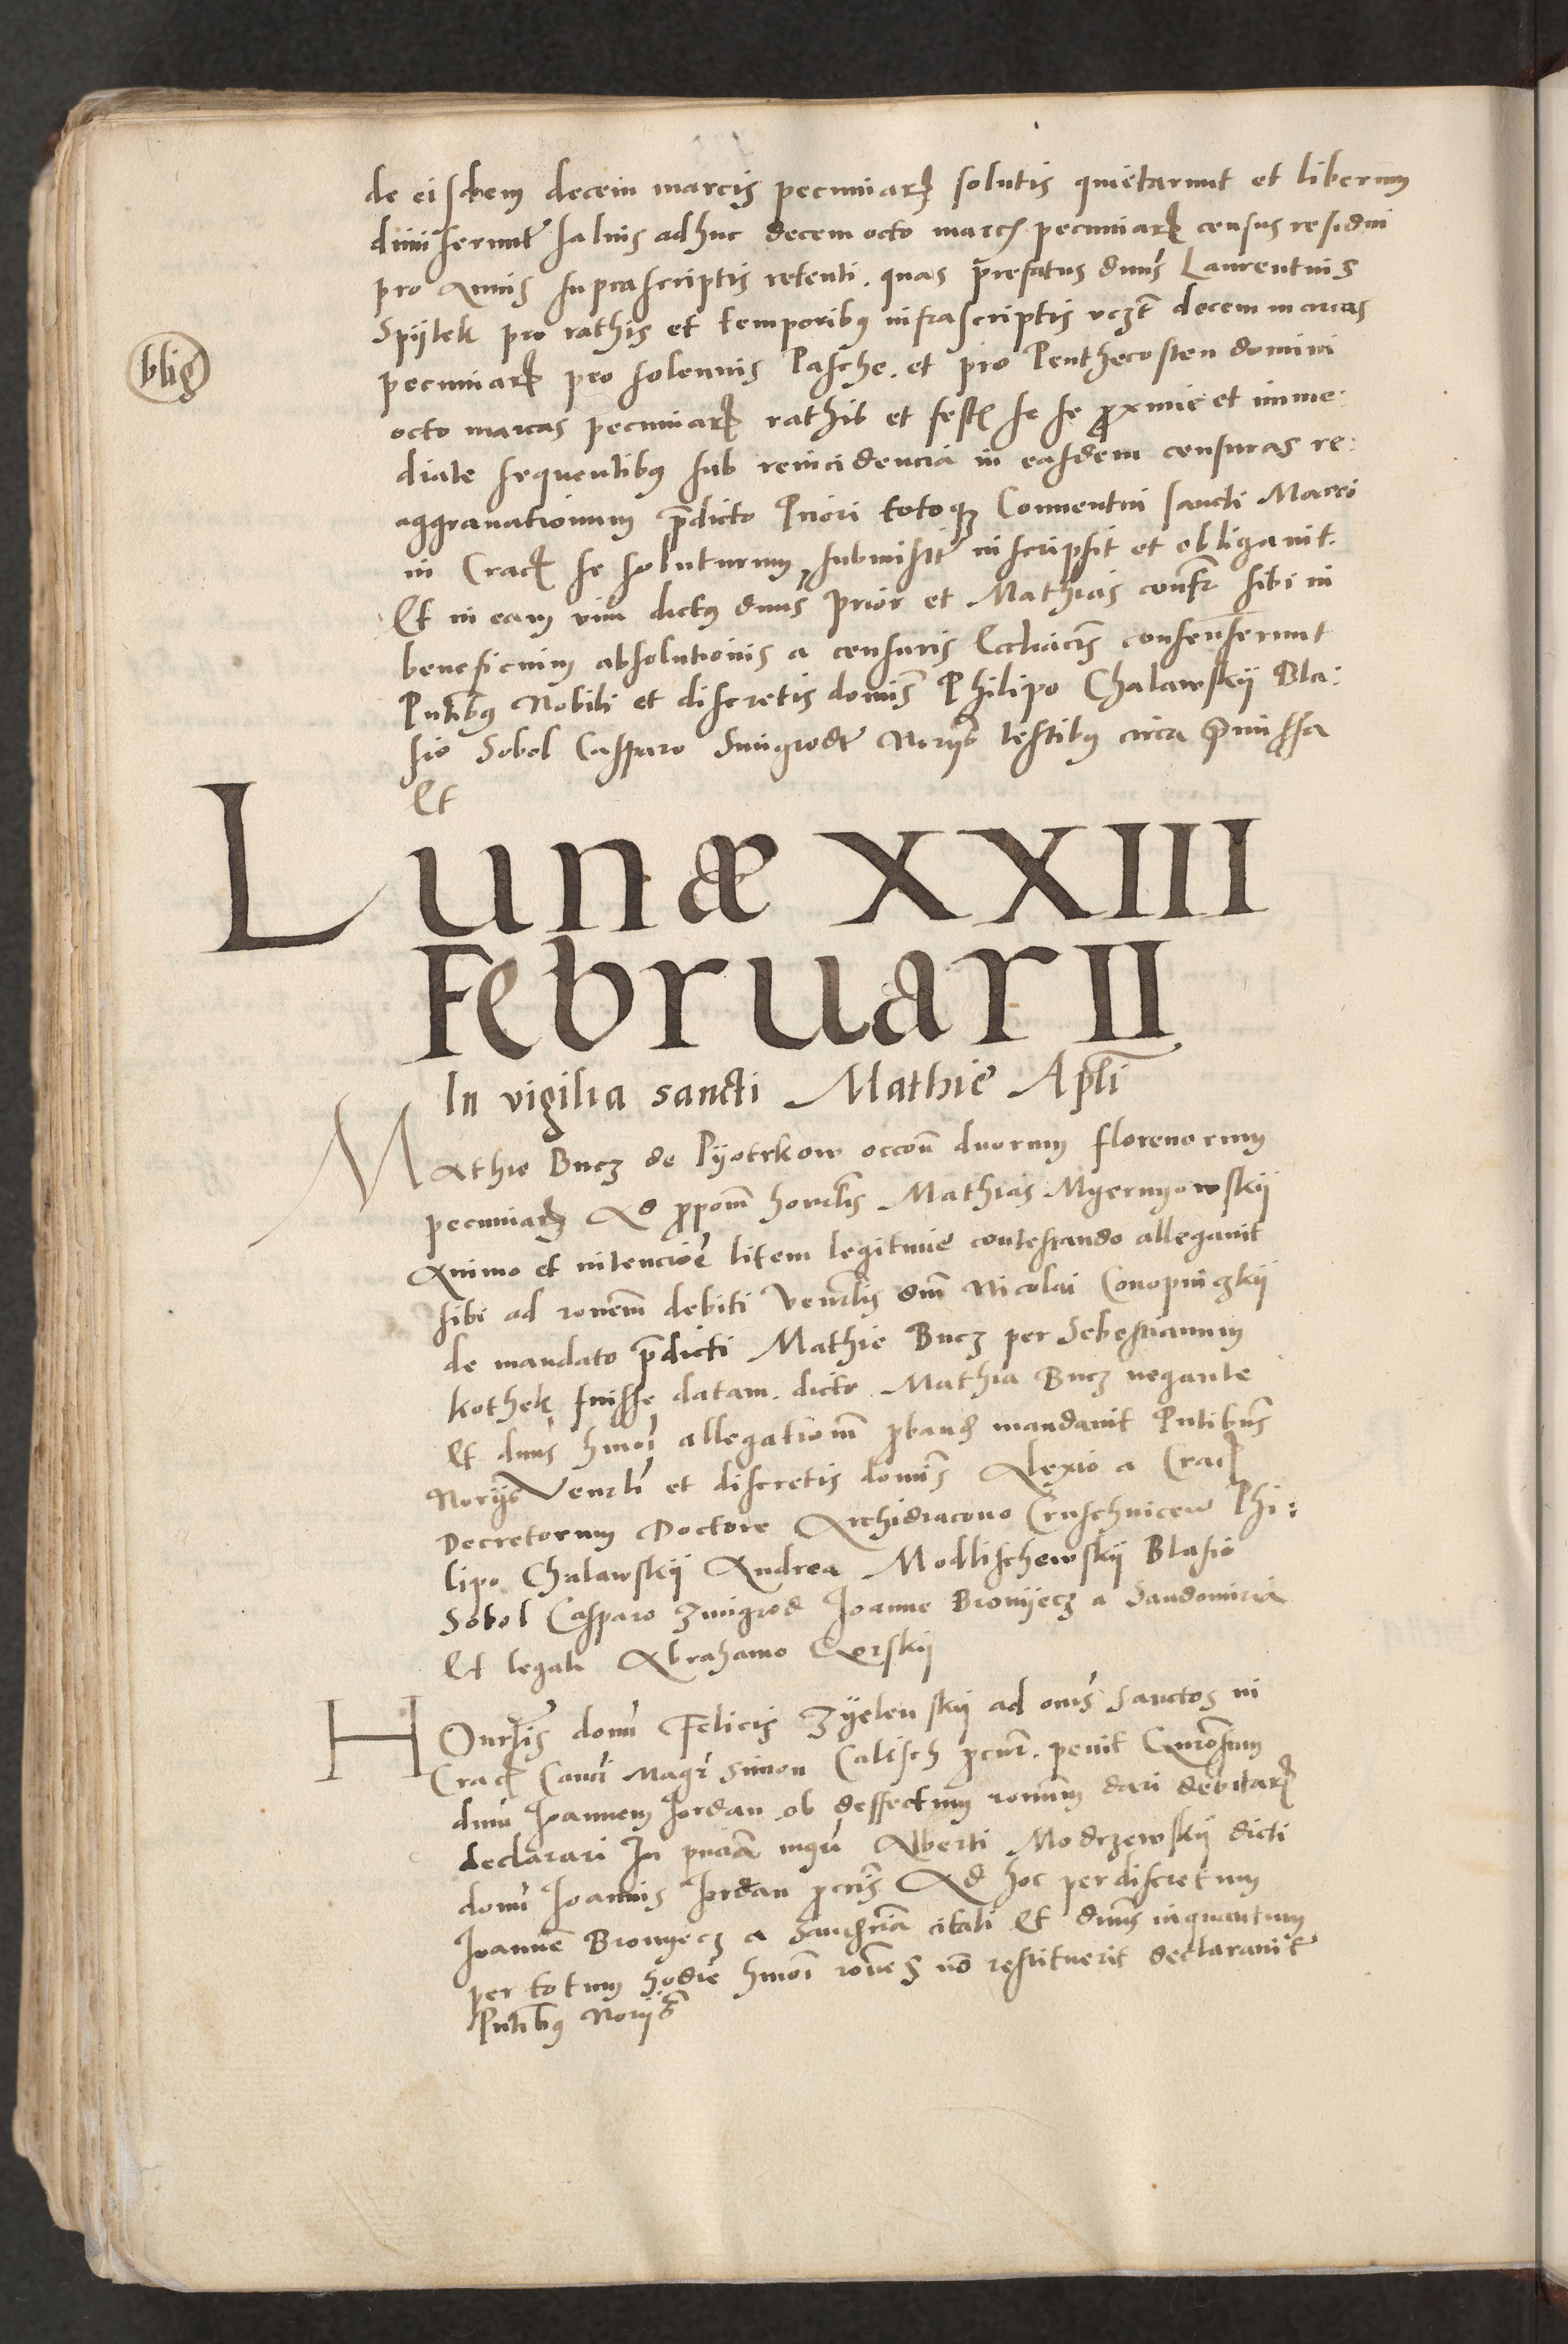 de eisdem decem marcis pecuniarꝝ solutis quietarunt et liberum
dimiserunt salvis adhuc decem octo marcis pecuniarꝝ census residui
pro Annis suprascriptis retenti. quas prefatus dnus Laurentius
Spytek pro rathis et temporibus infrascriptis vczt decem marcas
blig
pecuniarꝝ pro solennis Pasche. et pro Penthecosten domini
octo marcas pecuniarꝝ rathis et festis se se proxime et imme:
diate sequentibus sub reincidencia in easdem censuras re:
aggravationum pdicto Priori totoque Conventui sancti Marci
in Crac se soluturum, submisit inscripsit et obligavit.
Et in eam vim dictus dnus Prior et Mathias confr sibi in
beneficium absolutionis a censuris Eccliacis consenserunt
Pntibus Nobili et discretis dominis Philipo Chalawskij Bla:
sio Sobol Casparo Smigrodt Norijs testibus circa premissa
Et
Lunæ XXIII
Februarii
In vigilia sancti Mathie Apli
Mathie Bucz de Pyotrkow occoñ duorum florenorum
pecuniarꝝ Ad ppom honrlis Mathias Myernyowskij
Animo et intencioe litem legitime contestando allegavit
sibi ad ronem debiti Venrlis dni Nicolai Conopniczkij
de mandato pdicti Mathie Bucz per Sebestianum
kothek fuisse datam. dicto Mathia Bucz negante
Et dnus hmoi allegationem proband mandavit Pntibus
Norijs Venrli et discretis dominis Alexio a Crac
Decretorum Doctore Archidiacono Cruschwicen Phi:
lipo Chalawskij Andrea Modlischewskij Blasio
Sobol Casparo Zmigrod Joanne Bronyecz a Sandomiria
Et legali Abrahamo Gorskij
Honrlis domi Felicis Zyelenskij ad omes Sanctos in
Crac Canci Magr Simon Calisch pcur. petiit Gnrosum
dnm Joannem Jordan ob deffectum ronum dari debitarꝝ
declarari In pncia mgri Alberti Modrzewskij dicti
domi Joannis Jordan pcris Ad hoc per discretum
Joannem Bronyecz a Sandria citati Et dnus inquantum
per totum hodie hmoi rones no restituerit declaravit
Pntibus Norijs